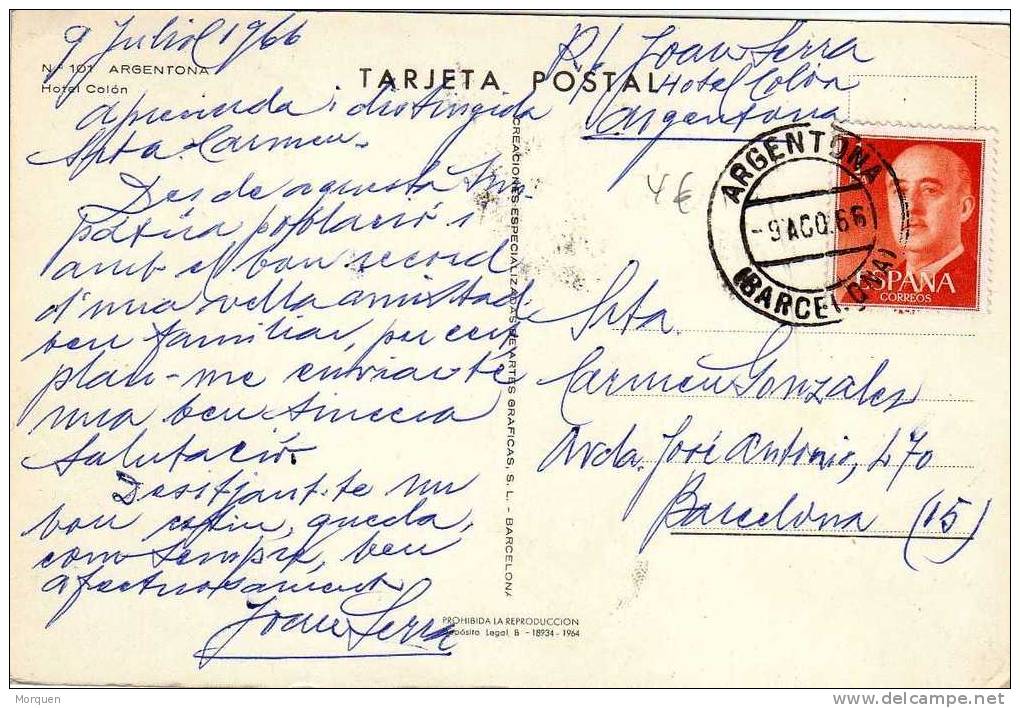 9 Juliol 1966
Nº 101 ARGENTONA
Hotel Colón
TARJETA POSTAL
R/ Joan Serra
Hotel Colón
Argentona
Apreciada i distingida
Srta. Carmen.
Desde aquesta sim-
pàtica població i
amb el bon record
d'una vella amistad
ben familiar, per
plau-me enviar-te
una ben sincera
salutació.
Desitjant-te un
bon estiu, queda,
com sempre, ben
afectuosament
Joan Serra
CREACIONES ESPECIALIZADAS DE ARTES GRAFICAS, S. L. - BARCELONA
PROHIBIDA LA REPRODUCCION
Depósito Legal B - 18934 - 1964
4 €
ARGENTONA
-9 AGO.66
(BARCELONA)
ESPAÑA
CORREOS
Srta.
Carmen Gonzalez
Avda. José Antonio, 470
Barcelona (15)
Morquen
www.delcampe.net